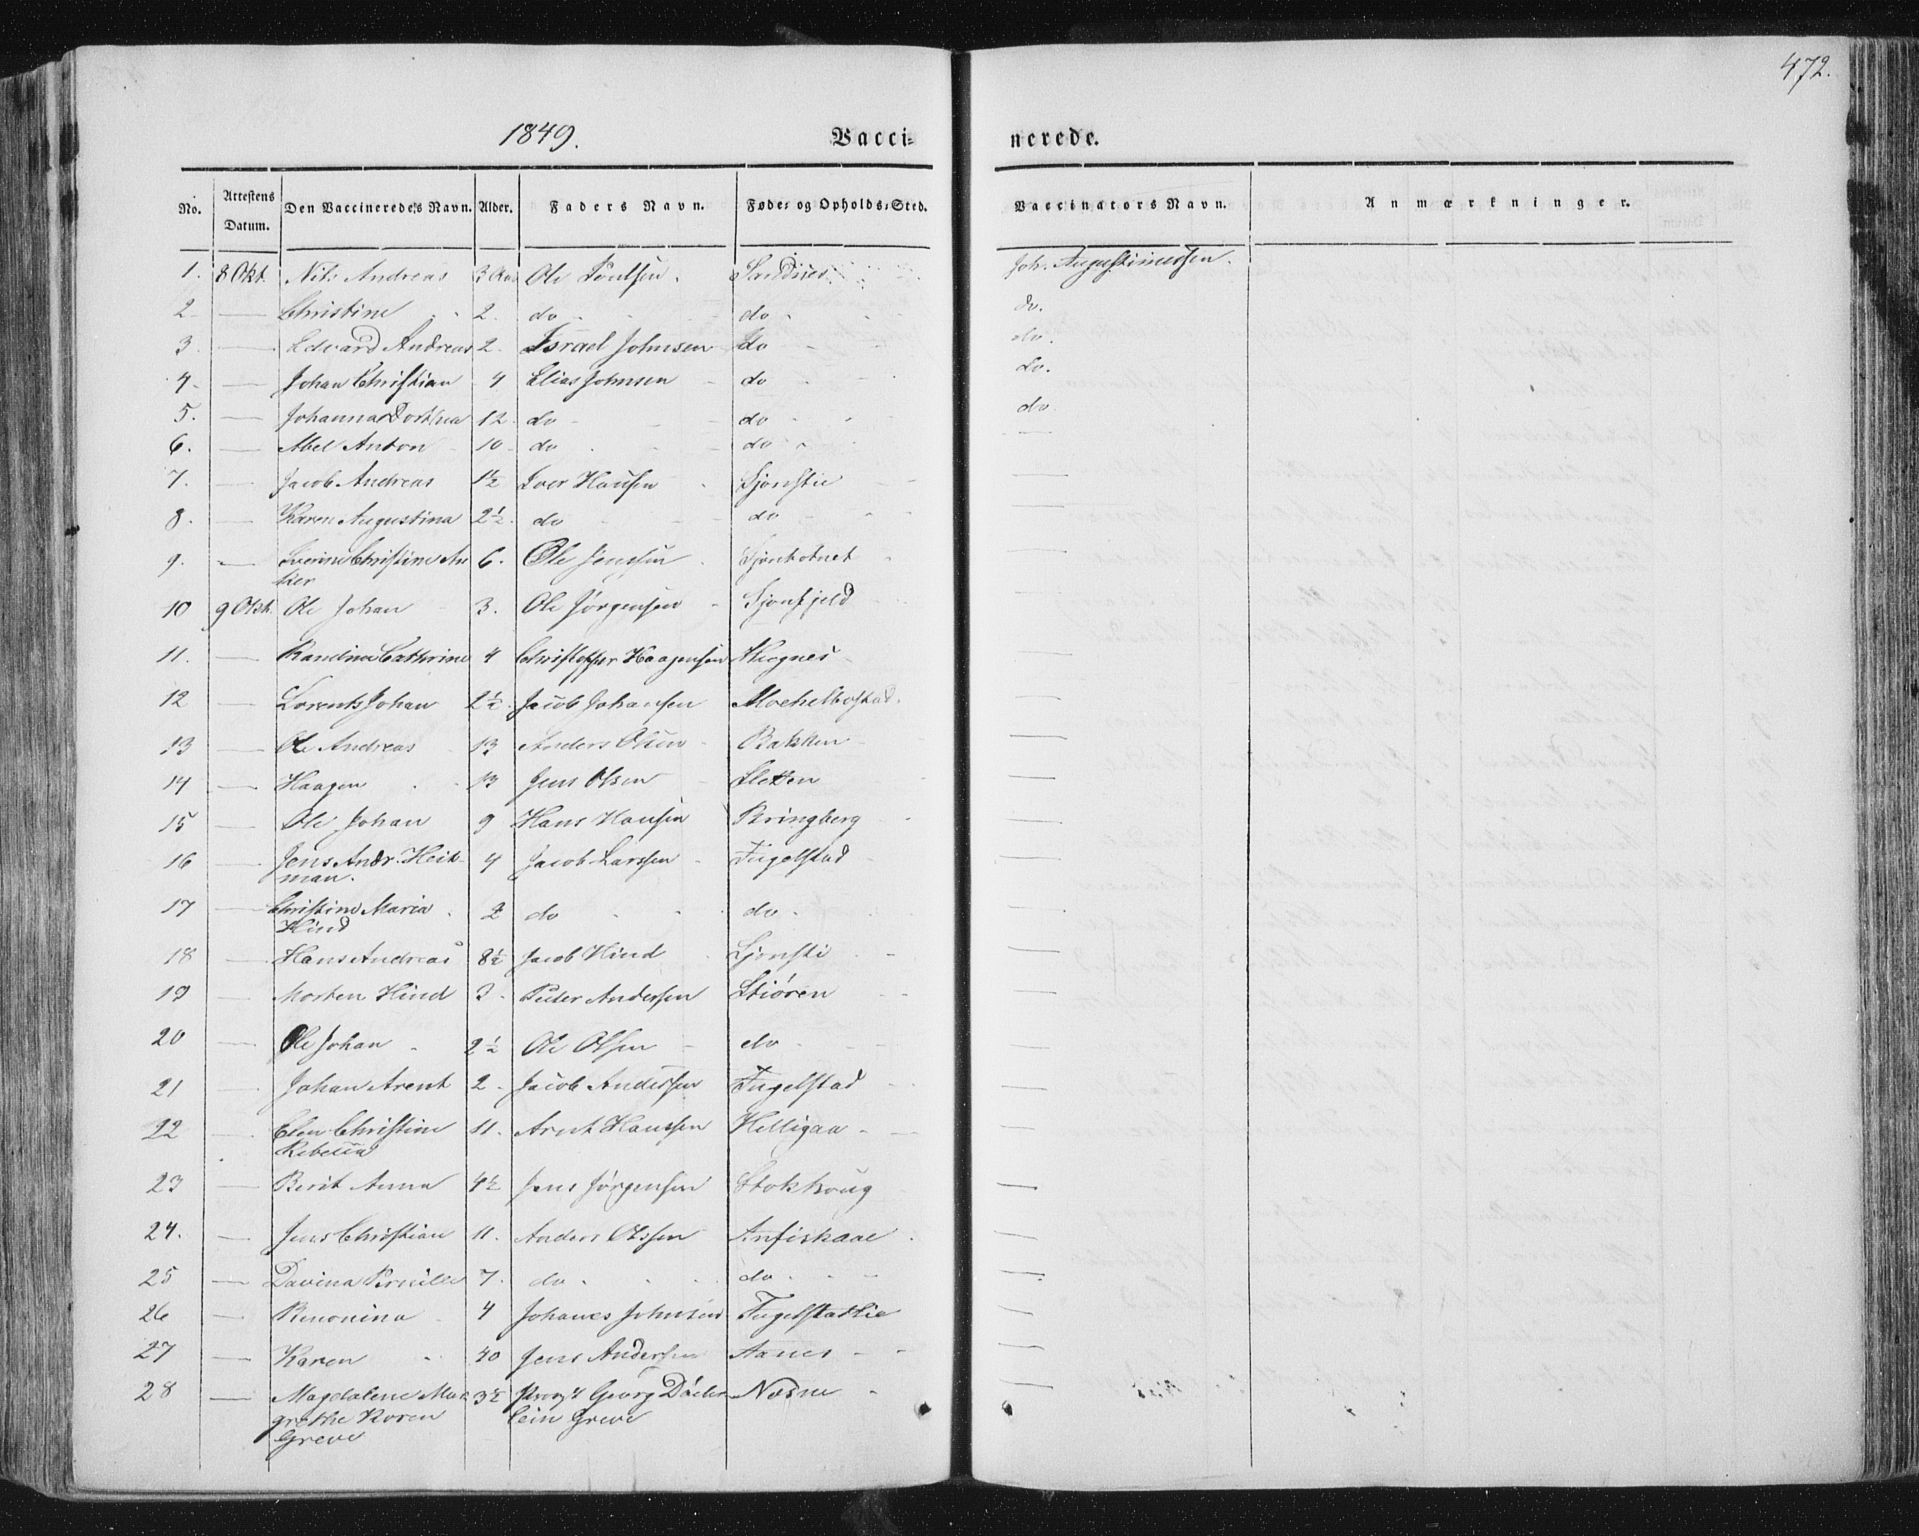 472.
1849. Vacci- nerede.
No. Attestens Datum. Den Vaccineredes Navn. Alder. Faders Navn. Føde- og Opholds-Sted. Vaccinators Navn. Anmærkninger.
1. 8 Okt. Nils Andreas 3 Ole Joh. Augustinussen.
2 — Christine 2. do do do.
3. — Edvard Andreas 2. Israel Johnsen do do.
4. — Johan Christian 4 Elias Johnsen do do.
5. — Johanna Dorthea 12. do do do.
6. — Abel Anton 10 do do —
7. — Jacob Andreas 1½ Iver Hansen Sjonstie —
8. — Karen Augustina 2½. do do —
9. — Christine 6. Ole Jenssen Sjonbotnet —
10 9 Okt. Ole Johan 3. Ole Jørgensen Sjonfjeld —
11. — Randine Cathrine 4 Christopher Haagensen —
12 — Lorents Johan 2½. Jacob Johansen —
13 — Ole Andreas 13 Anders Olsen Bakken —
14 — Haagen 13 Jens Olsen Sletten —
15 — Ole Johan 9 Hans Hansen Bringberg —
16 — Jens Andr. Heit-
man. 4 Jacob Larssen Fugelstad —
17 — Christine Maria
Hind 2 do do —
18 — Hans Andreas 8½ Jacob Hind Sjonsti —
19 — Morten Hind 3. Peder Andersen Stiøren —
20 — Ole Johan 2½ Ole Olsen do —
21 — Johan Arent 2. Jacob Anderssen Fugelstad —
22 — Elen Christine
Rebecca 11. Arnt Hanssen Helligaa —
23 — Berit Anna 4½ Jens Jørgensen —
24. — Jens Christian 11. Anders Olssen —
25 — Davina Pernille 7. do do —
26 — Benonina 4 Johanes Johnsen Fugelstadlie —
27 — Karen 40 Jens Andersen Aanes —
28 — Magdalene Mar-
grethe Koren
Greve 3½ Georg
lein Greve Nesne —